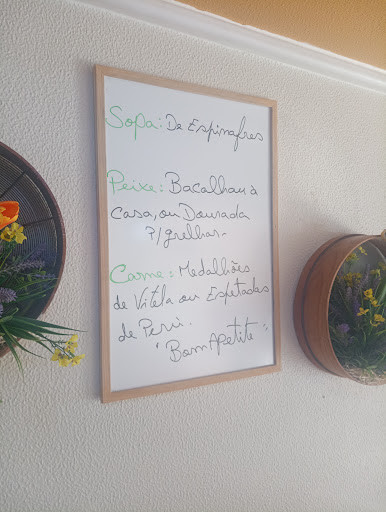 Sopa: De Espinafres
Peixe: Bacalhau à
Casa, ou Dourada
P/grelhar.
Carne: Medalhões
de Vitela ou Espetadas
de Peru.
"Bom Apetite"